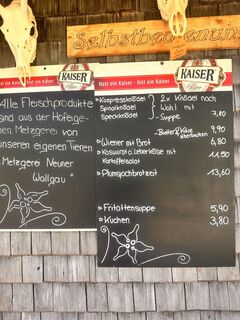 Selbstbedienung
KAISER
Bier
Hast ein Kaiser - bist ein Kaiser
Alle Fleischprodukte
sind aus der Hofeige-
nen Metzgerei von
unseren eigenen Tieren
Metzgerei Neuner
Wallgau"
KAISER
Bier
Hast ein Kaiser - bist ein Kaiser
Kaspressknödel
Spinatknödel
Speckknödel
2x Knödel nach
Wahl mit
- Suppe 7,40
- Butter & Käse
überbacken 9,90
Wiener mit Brot 6,80
Kaswurst o. Leberkäse mit
Kartoffelsalat 11,50
Plumsjochbrotzeit 13,60
Frittattensuppe 5,90
Kuchen 3,80